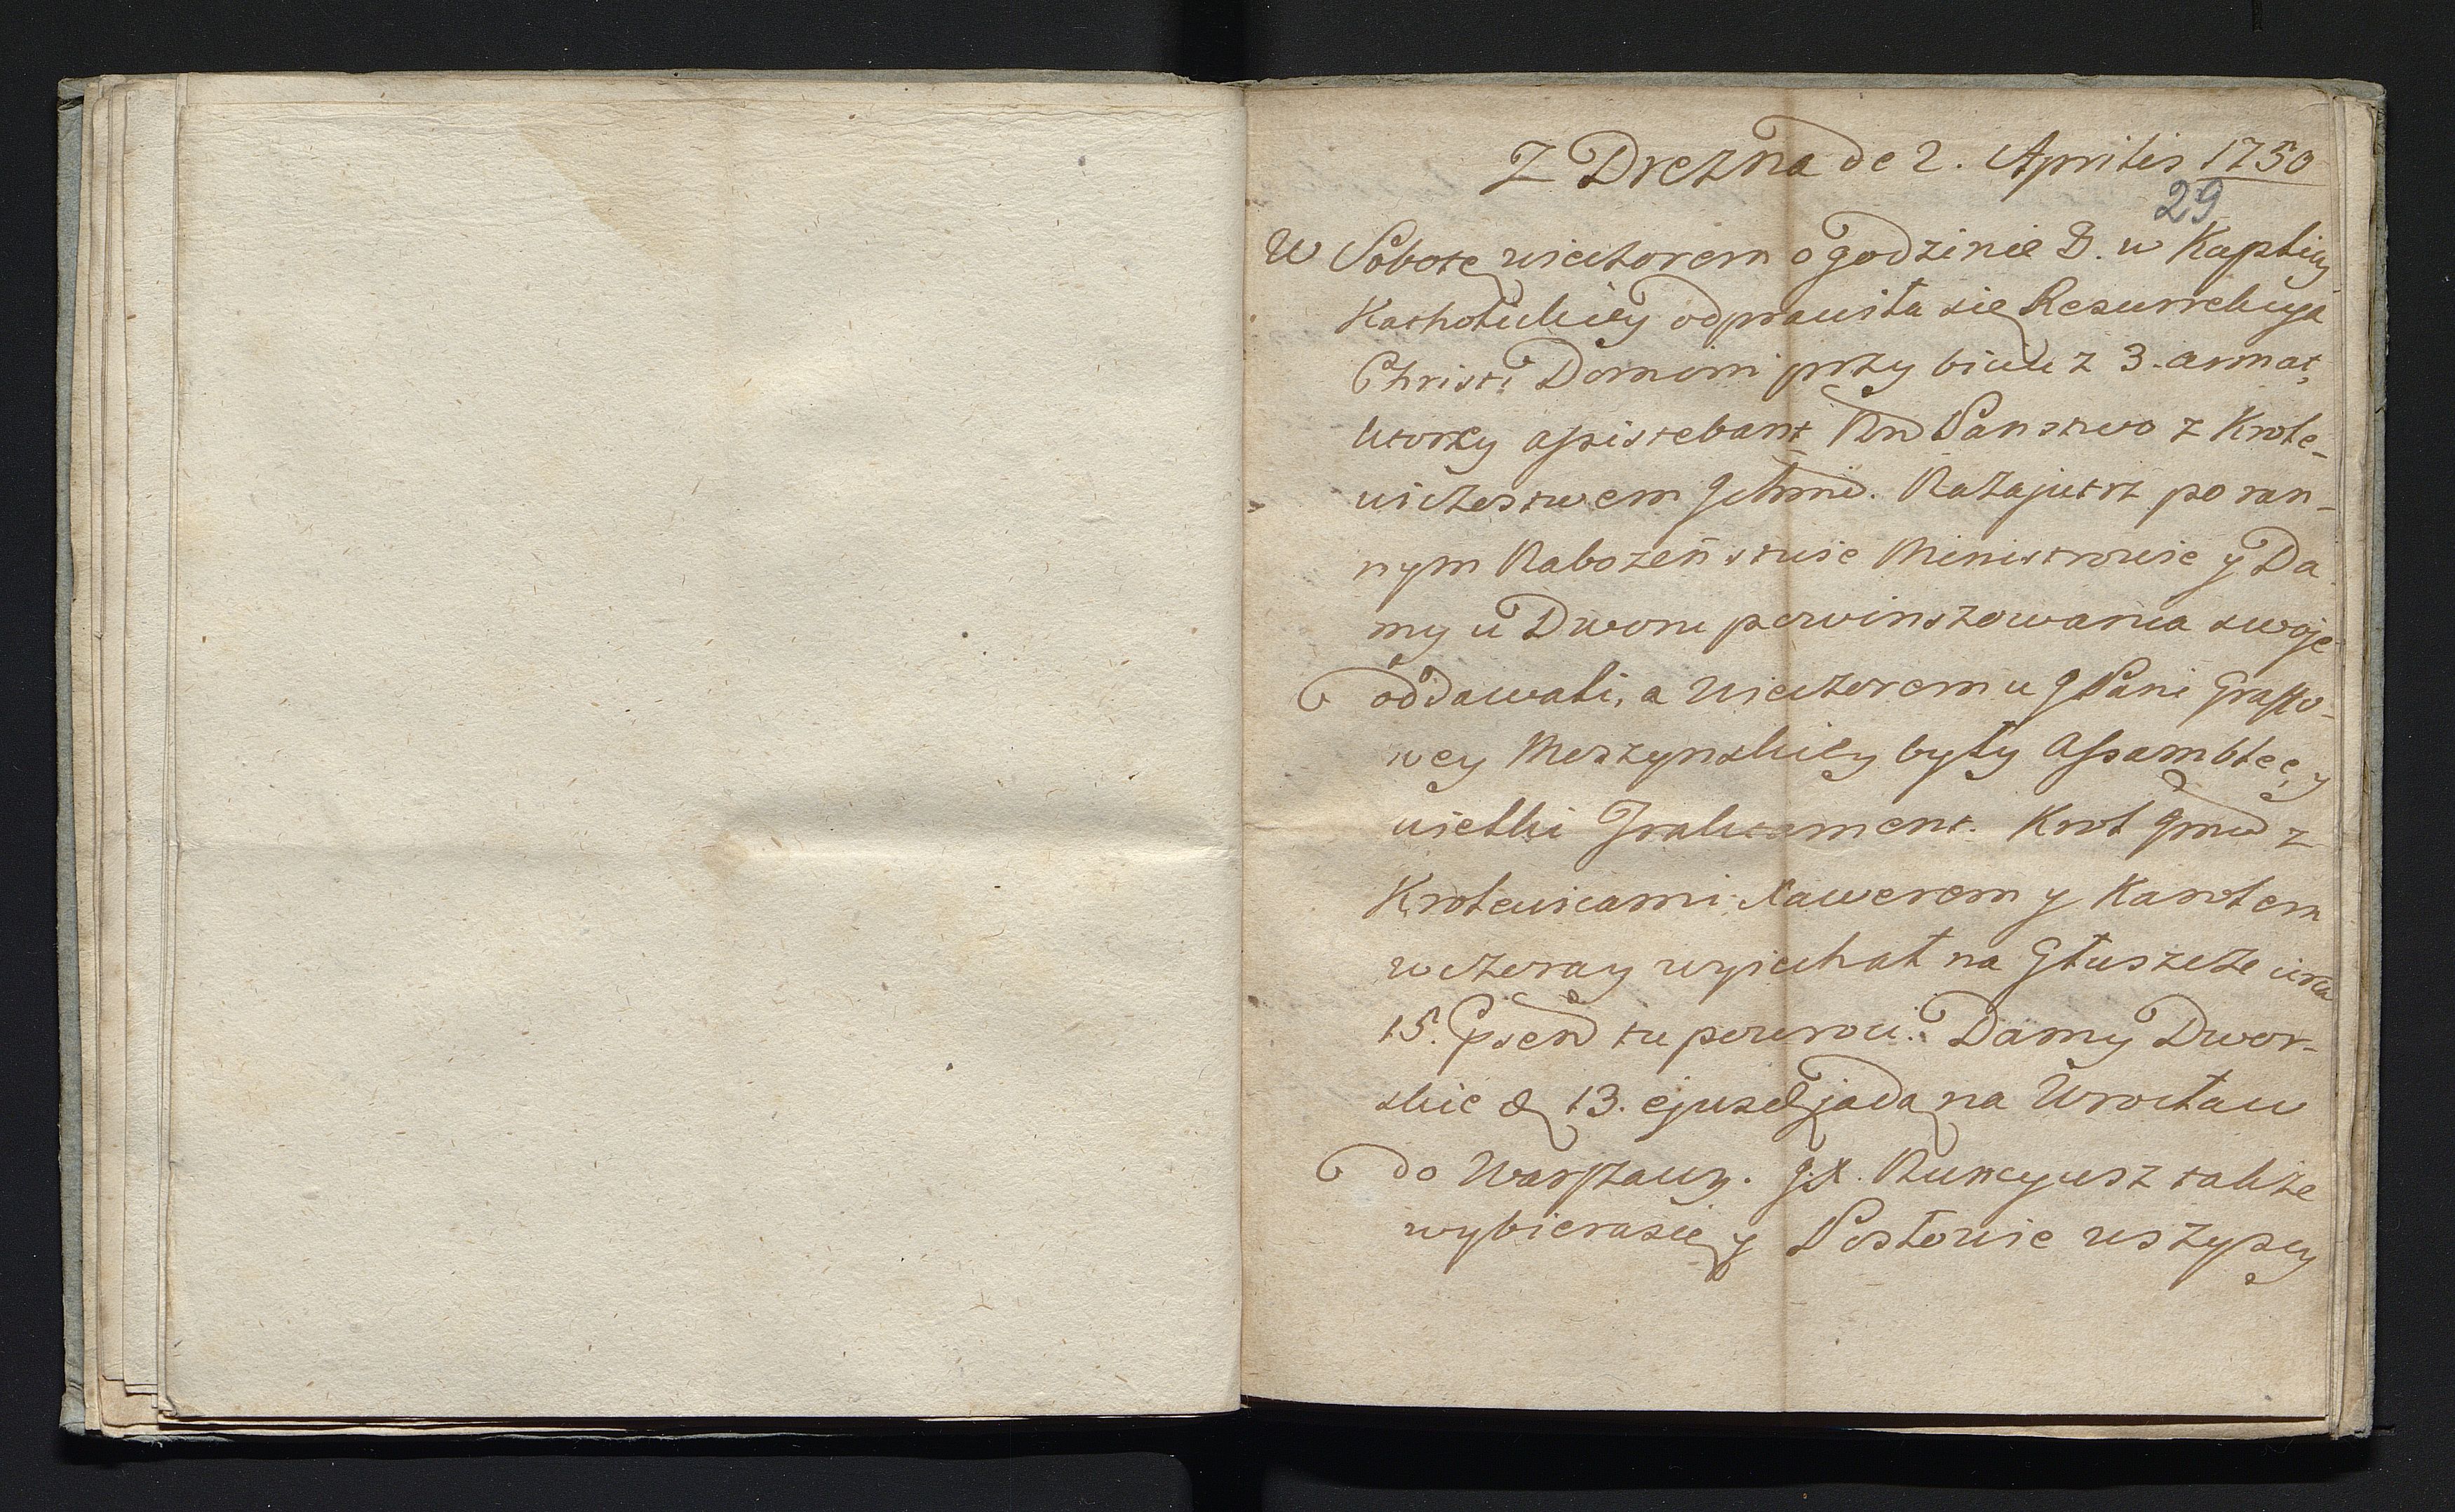 Z Drezna de 2. Aprilis 1750
29
W Sobotę wieczorem o godzinie 8. w Kaplicy
Katholickiey odprawiła się Resurrekcya
Christi Domini przy biciu z 3. armat,
ktorey assistebant Państwo z Krole-
wiczostwem Ichmć. Nazajutrz po ran-
nym Nabozeństwie Ministrowie y Da
my u Dworu powinszowania swoje
oddawali, a wieczorem u JPani Graffo-
wey Moszynskiey były Assamblee, y
wielki Traktament. Krol Jmć z
Krolewicami Xawerem y Karolem
wczoray wyjechał na Głuszcze circa
15. tu powroci. Damy Dwor-
skie d. 13. ejusd jadą na Wrocław
do Warszawy. JX. Nuncyusz także
wybiera się y Posłowie wszyscy